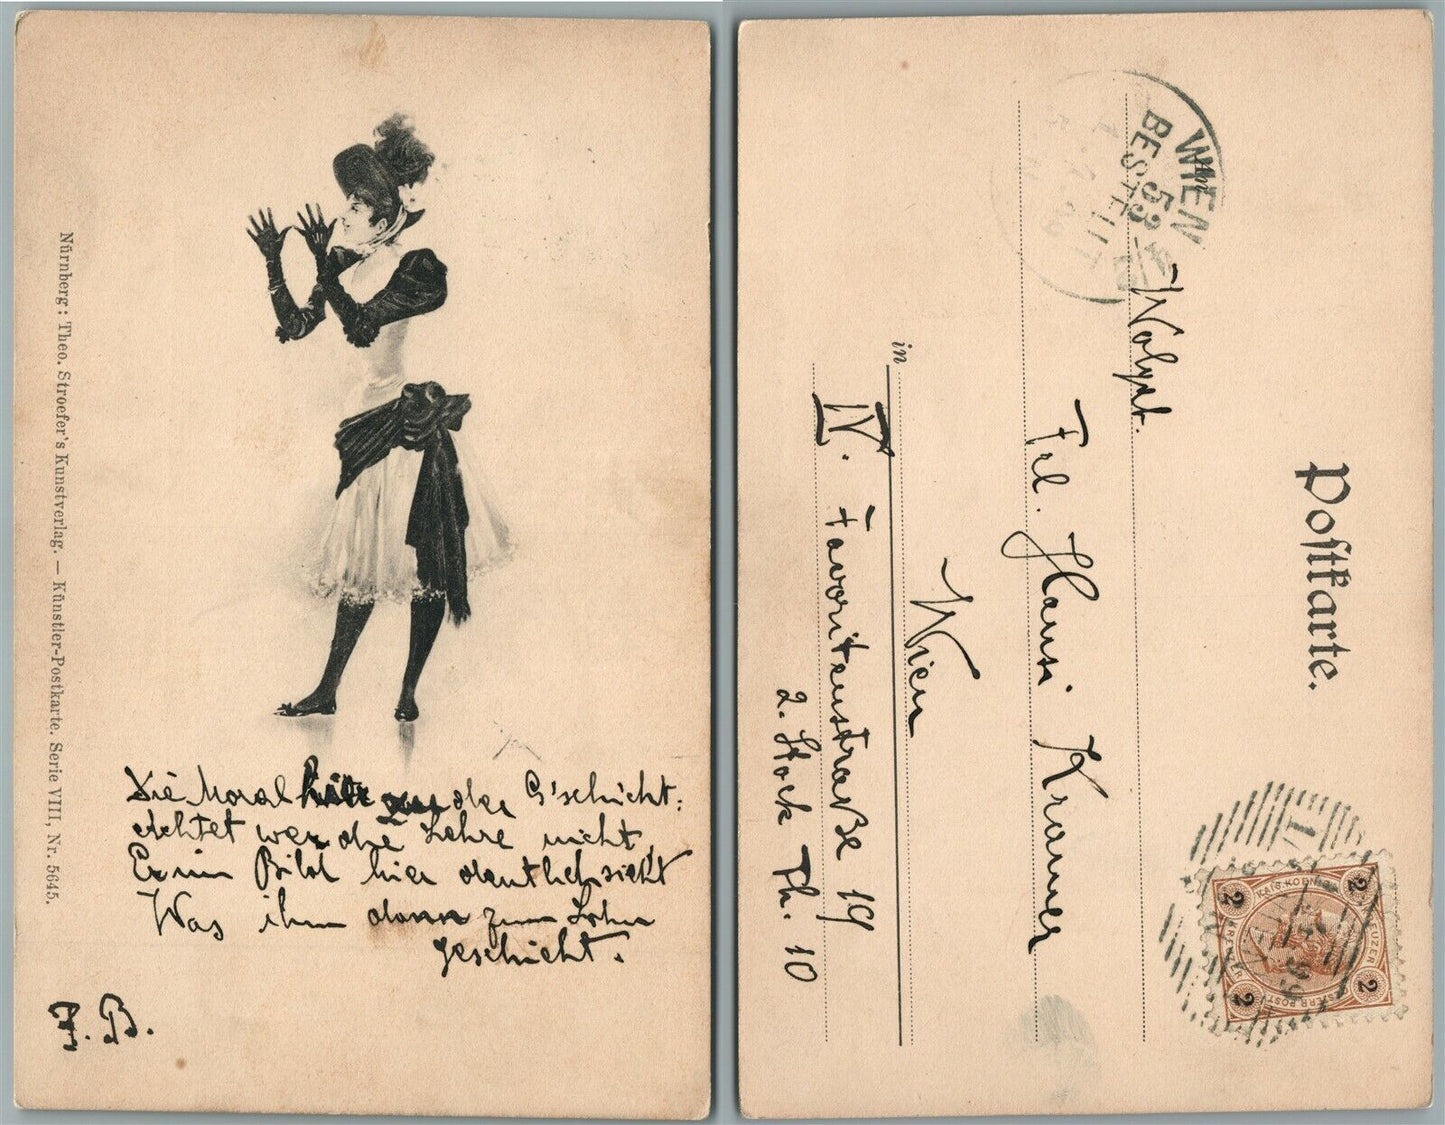 Nürnberg: Theo. Stroefer's Kunstverlag. — Künstler-Postkarte. Serie VIII, Nr. 5645.
Die Moral der G'schicht:
Achtet wer die Lehre nicht,
Er im Bild hier deutlich sieht
Was ihm dann zum Lohn
geschieht.
F. B.
Postkarte.
An
Wolgeb.
Frl. Hansi Kramer
Wien
in
IV. Favoritenstraße 19
2. Stock Th. 10
WIEN
53
BESTELLT
2 KAIS. KÖN. 2
2 2